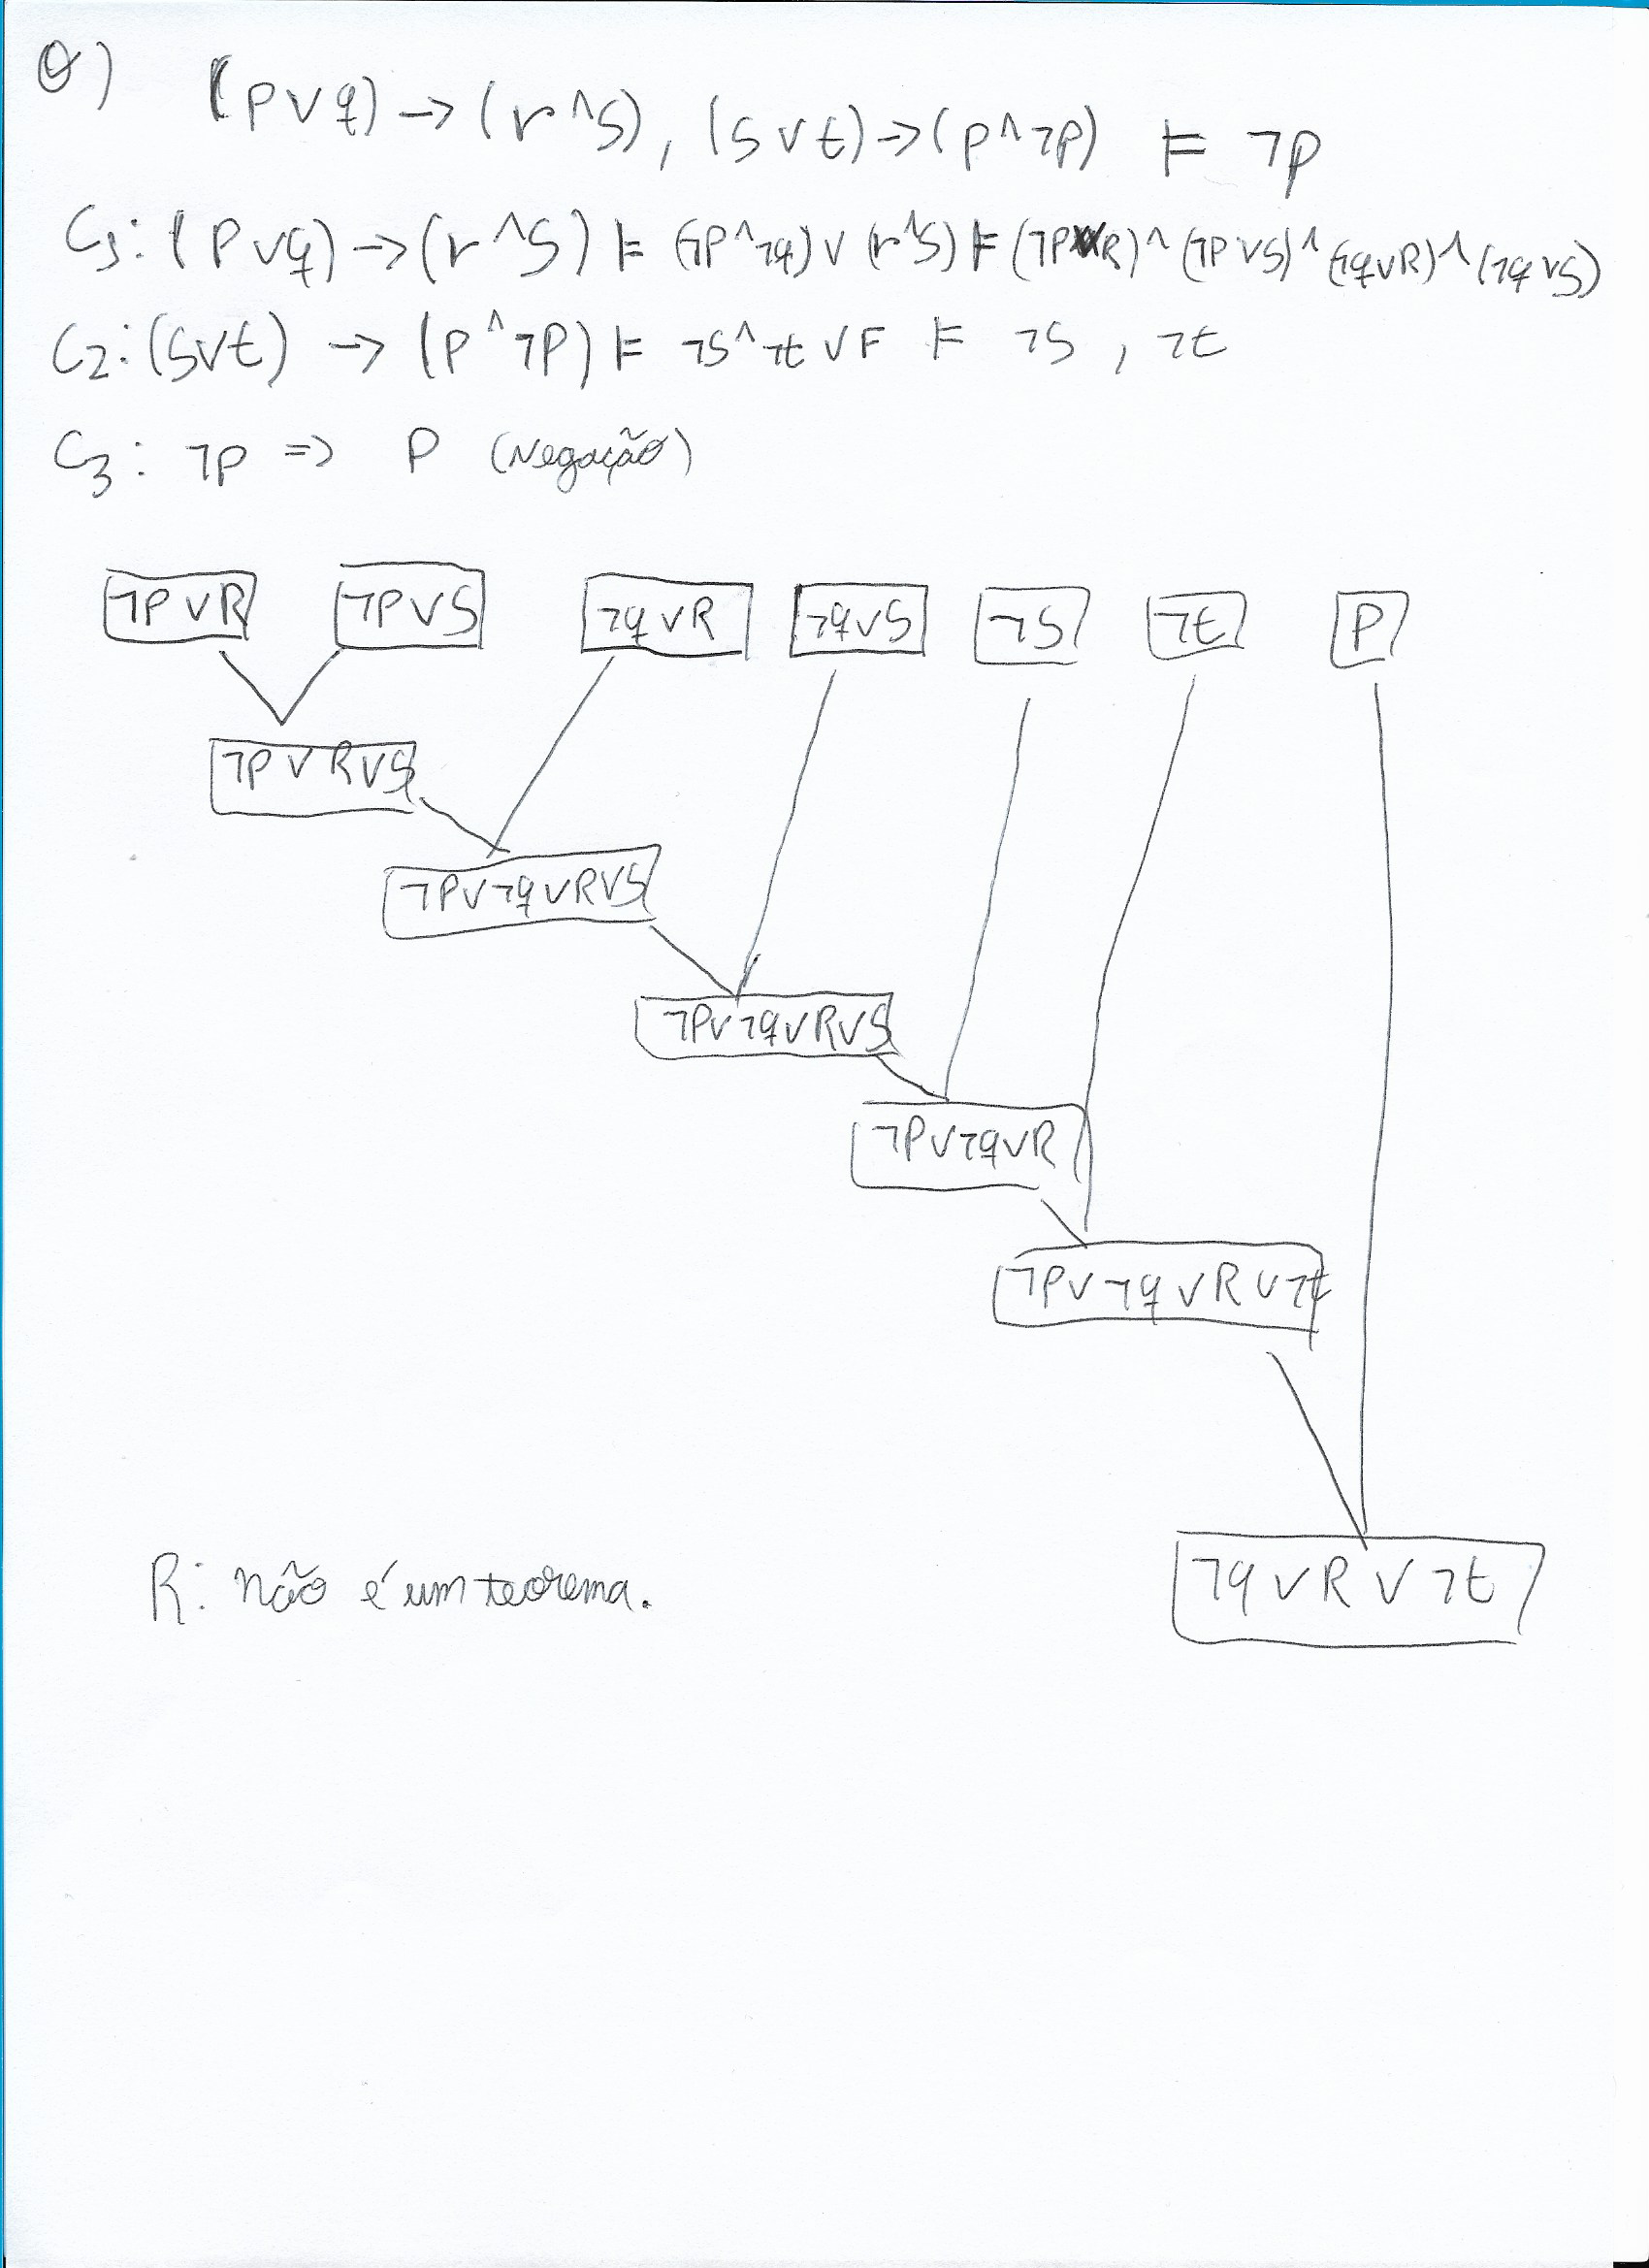 θ) (p∨q)→(r^S), (S∨t)→(p^¬p) ⊨ ¬p
C1: (p∨q)→(r^S) ⊨ (¬p^¬q)∨(r^S) ⊨ (¬p∨R)^(¬p∨S)^(¬q∨R)^(¬q∨S)
C2: (S∨t) → (p^¬p) ⊨ ¬S^¬t∨F ⊨ ¬S, ¬t
C3: ¬p => P (Negação)
¬p∨R ¬p∨S ¬q∨R ¬q∨S ¬S ¬t P
¬p∨R∨S
¬p∨¬q∨R∨S
¬p∨¬q∨R∨S
¬p∨¬q∨R
¬p∨¬q∨R∨¬t
¬q∨R∨¬t
R: não é um teorema.